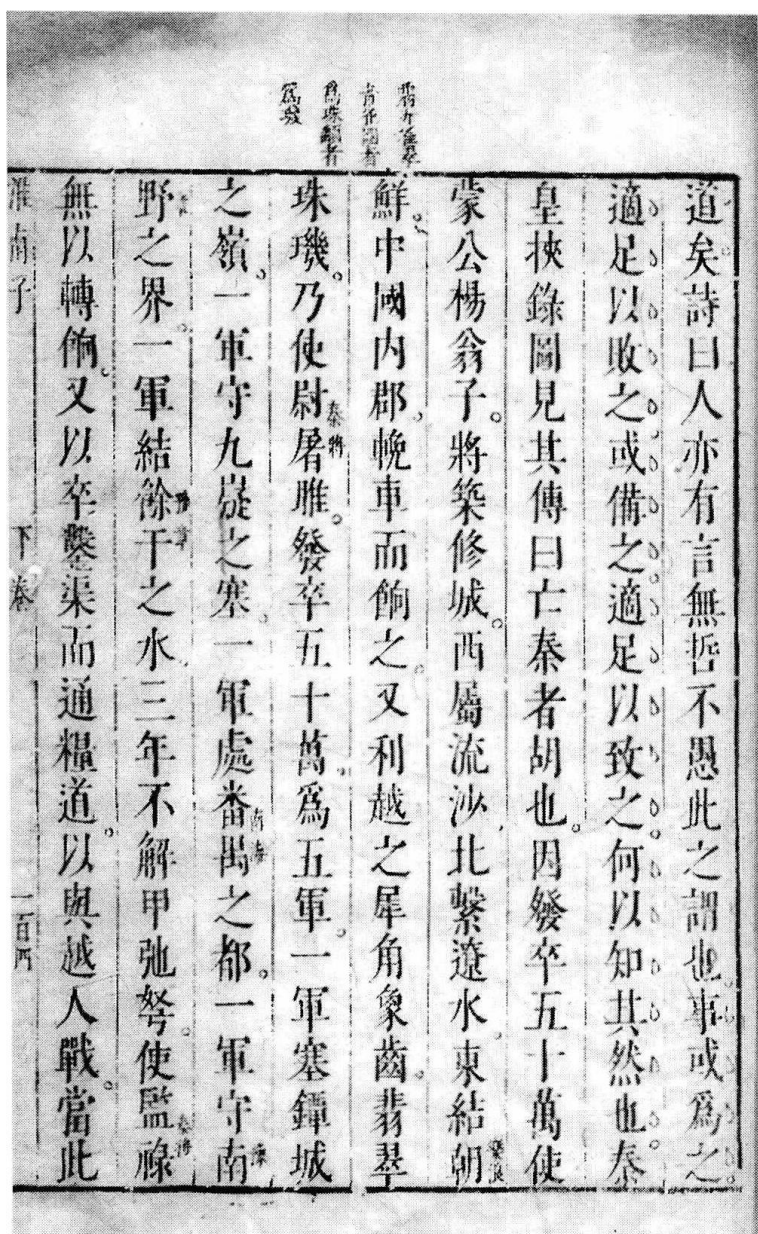 翡赤雀翠
青雀圓者
爲珠纇者
爲璣
道矣詩曰人亦有言無哲不愚此之謂也事或爲之
適足以敗之或備之適足以致之何以知其然也秦
皇挾錄圖見其傳曰亡秦者胡也因發卒五十萬使
蒙公楊翁子將築修城西屬流沙北繫遼水東結朝樂浪
鮮中國內郡輓車而餉之又利越之犀角象齒翡翠
珠璣乃使尉屠睢秦將發卒五十萬爲五軍一軍塞鐔城
之嶺一軍守九嶷之塞一軍處番禺南海之都一軍守南豫
野章之界一軍結餘干豫章之水三年不解甲弛弩使監祿秦將
無以轉餉又以卒鑿渠而通糧道以與越人戰當此
淮南子 下卷 一百四